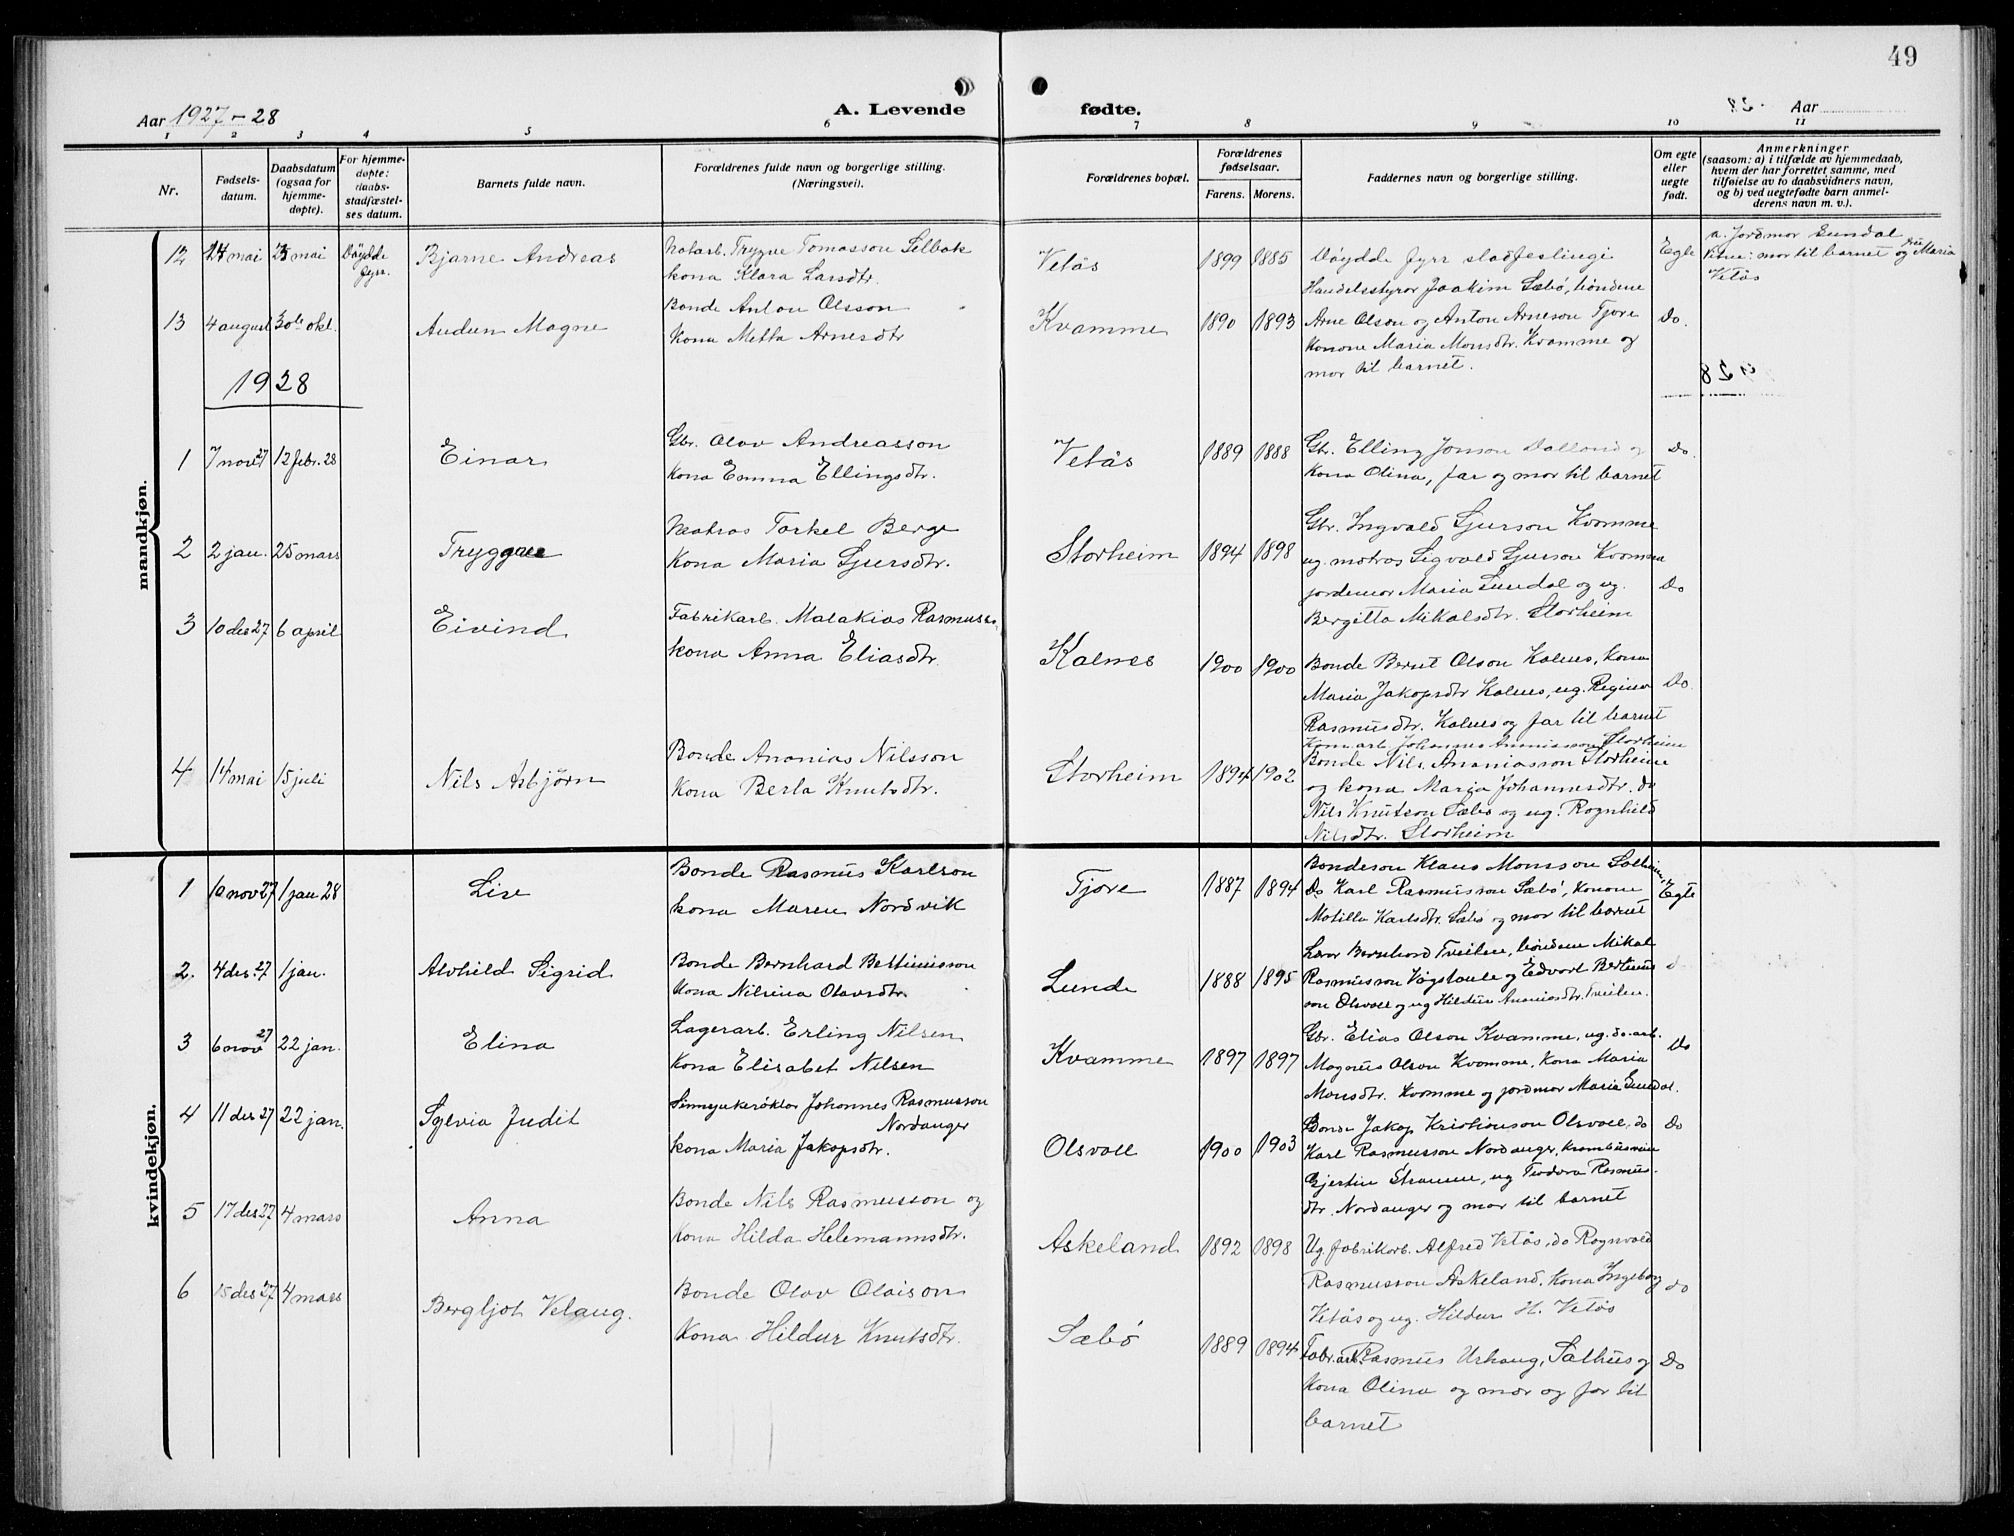 49
Aar 1927-28
A. Levende
fødte.
Aar
1 2 3 4 5 6 7 8 9 10 11
Nr.
Fødsels-
datum.
Daabsdatum
(ogsaa for
hjemme-
døpte).
For hjemme-
døpte:
daabs-
stadfæstel-
ses datum.
Barnets fulde navn.
Forældrenes fulde navn og borgerlige stilling.
(Næringsvei).
Forældrenes bopæl.
Forældrenes
fødselsaar.
Farens. Morens.
Faddernes navn og borgerlige stilling.
Om egte
eller
uegte
født.
Anmerkninger
(saasom: a) i tilfælde av hjemmedaab,
hvem der har forrettet samme, med
tilføielse av to daabsvidners navn,
og b) ved uegtefødte barn anmel-
derens navn m. v.).
mandkjøn.
12 24 mai 25 mai Döydde fyrr. Bjarne Andreas
Notarb. Trygve Tomasson Selbak
kona Klara Larsdtr.
Vetås 1899 1885 Döydde fyrr stadfestingi Egte
a. Jordmor Sundal
Vitne: mor til barnet og Maria
Vetås
13 4 august 30te okt. Audun Magne
Bonde Anton Olsson
Kona Metta Arnesdtr
Kvamme 1890 1893
Handelsstyrar Joakim Sæbö, böndene
Arne Olson og Anton Arneson Tjore
Konone Maria Monsdtr. Kvamme og
mor til barnet.
Do.
1928
1 7 nov 27 12 febr. 28 Einar
Gbr. Olav Andreasson
Kona Emma Ellingsdtr.
Vetås 1889 1888
Gbr. Elling Jonson Dalland og
Kona Olina, far og mor til barnet
Do.
2 2 jan. 25 mars Tryggve
Matros Torkel Berge
Kona Maria Sjursdtr.
Storheim 1894 1898
Gbr. Ingvald Sjurson Kvamme
ug. matros Sigvald Sjurson Kvamme
jordemor Maria Sundal og ug.
Bergitta Mikalsdtr. Storheim
Do
3 10 des 27 6 april Eivind
Fabrikarb. Malakias Rasmusson
kona Anna Eliasdtr.
Kalnes 1900 1900
Bonde Bernt Olson Kalnes, Kona
Maria Jakopsdtr Kalnes, ug. Regina
Rasmusdtr. Kalnes og far til barnet
Do.
4 14 mai 15 juli Nils Asbjörn
Bonde Ananias Nilsson
Kona Berta Knutsdtr.
Storheim 1894 1902
Johannes Ananiasson Storheim
Bonde Nils Ananiasson Storheim
og kona Marja Johannesdtr. do
Nils Knutson Sæbö og ug. Ragnhild
Nilsdtr. Storheim
kvindekjøn.
1 10 nov 27 1 jan 28 Lise
Bonde Rasmus Karlson
kona Maren Nordvik
Tjore 1887 1894
Bondeson Klaus Monsson Solheim,
Do Karl Rasmusson Sæbö, Konone
Matilla Karlsdtr. Sæbö og mor til barnet
Egte
2. 4 des 27 1 jan. Alvhild Sigrid
Bonde Bernhard Bettinusson
Kona Nilsina Olavsdtr.
Lunde 1888 1895
Lærar Bernhard Tveiten, böndene Mikal
Rasmusson Vågstaule og Edvart Bertinus
son Olsvoll og ug Hildur Ananiasdtr. Tveiten.
3 6 nov 27 22 jan. Elina
Lagerarb. Erling Nilsen
Kona Elisabet Nilsen
Kvamme 1897 1897
Gbr. Elias Olson Kvamme, ug. do. arb.
Magnus Olson Kvamme, Kona Maria
Monsdtr. Kvamme og jordmor Maria Sundal.
Do
4 11 des 27 22 jan. Sylvia Judit
Johannes Rasmusson
Nordanger
kona Maria Jakopsdtr.
Olsvoll 1900 1903
Bonde Jakop Kristianson Olsvoll, do
Karl Rasmusson Nordanger,
Gjertine Straume, ug Teodora Rasmus-
dtr. Nordanger og mor til barnet
Do
5 17 des 27 4 mars Anna
Bonde Nils Rasmusson og
Kona Hilda Helemannsdtr.
Askeland 1892 1898
Ug. fabrikarb. Alfred Vetås, do Ragnvald
Rasmusson Askeland, Kona Ingeborg
Vetås og ug. Hildur H. Vetås
do
6 15 des 27 4 mars Bergljot Velaug.
Bonde Olav Olaison
Kona Hildur Knutsdtr.
Sæbö 1889 1894
Fabr. arb. Rasmus Urhaug, Salhus og
Kona Olina og mor og far til
barnet
Do